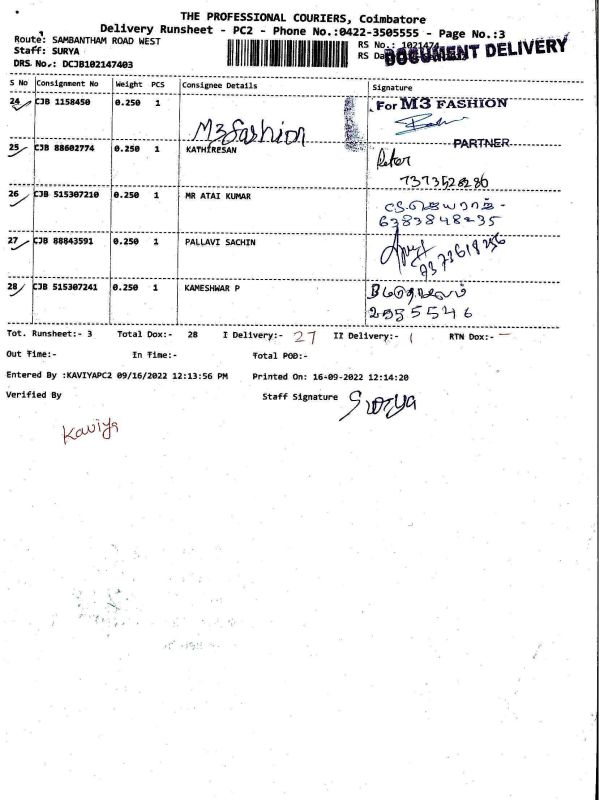 THE PROFESSIONAL COURIERS, Coimbatore
Delivery Runsheet - PC2 - Phone No.:0422-3505555 - Page No.:3
Route: SAMBANTHAM ROAD WEST
RS No.: 1021474
Staff: SURYA
RS Da
DOCUMENT DELIVERY
DRS No.: DCJB102147403
S No Consignment No Weight PCS Consignee Details Signature
24 CJB 1158450 0.250 1 M3 fashion For M3 FASHION
PARTNER
25 CJB 88602774 0.250 1 KATHIRESAN
7373528286
26 CJB 515307210 0.250 1 MR ATAI KUMAR
6383848235
27 CJB 88843591 0.250 1 PALLAVI SACHIN
28 CJB 515307241 0.250 1 KAMESHWAR P
Tot. Runsheet:- 3 Total Dox:- 28 I Delivery:- 27 II Delivery:- ( RTN Dox:- —
Out Time:- In Time:- Total POD:-
Entered By :KAVIYAPC2 09/16/2022 12:13:56 PM Printed On: 16-09-2022 12:14:20
Verified By Staff Signature Surya
Kaviya